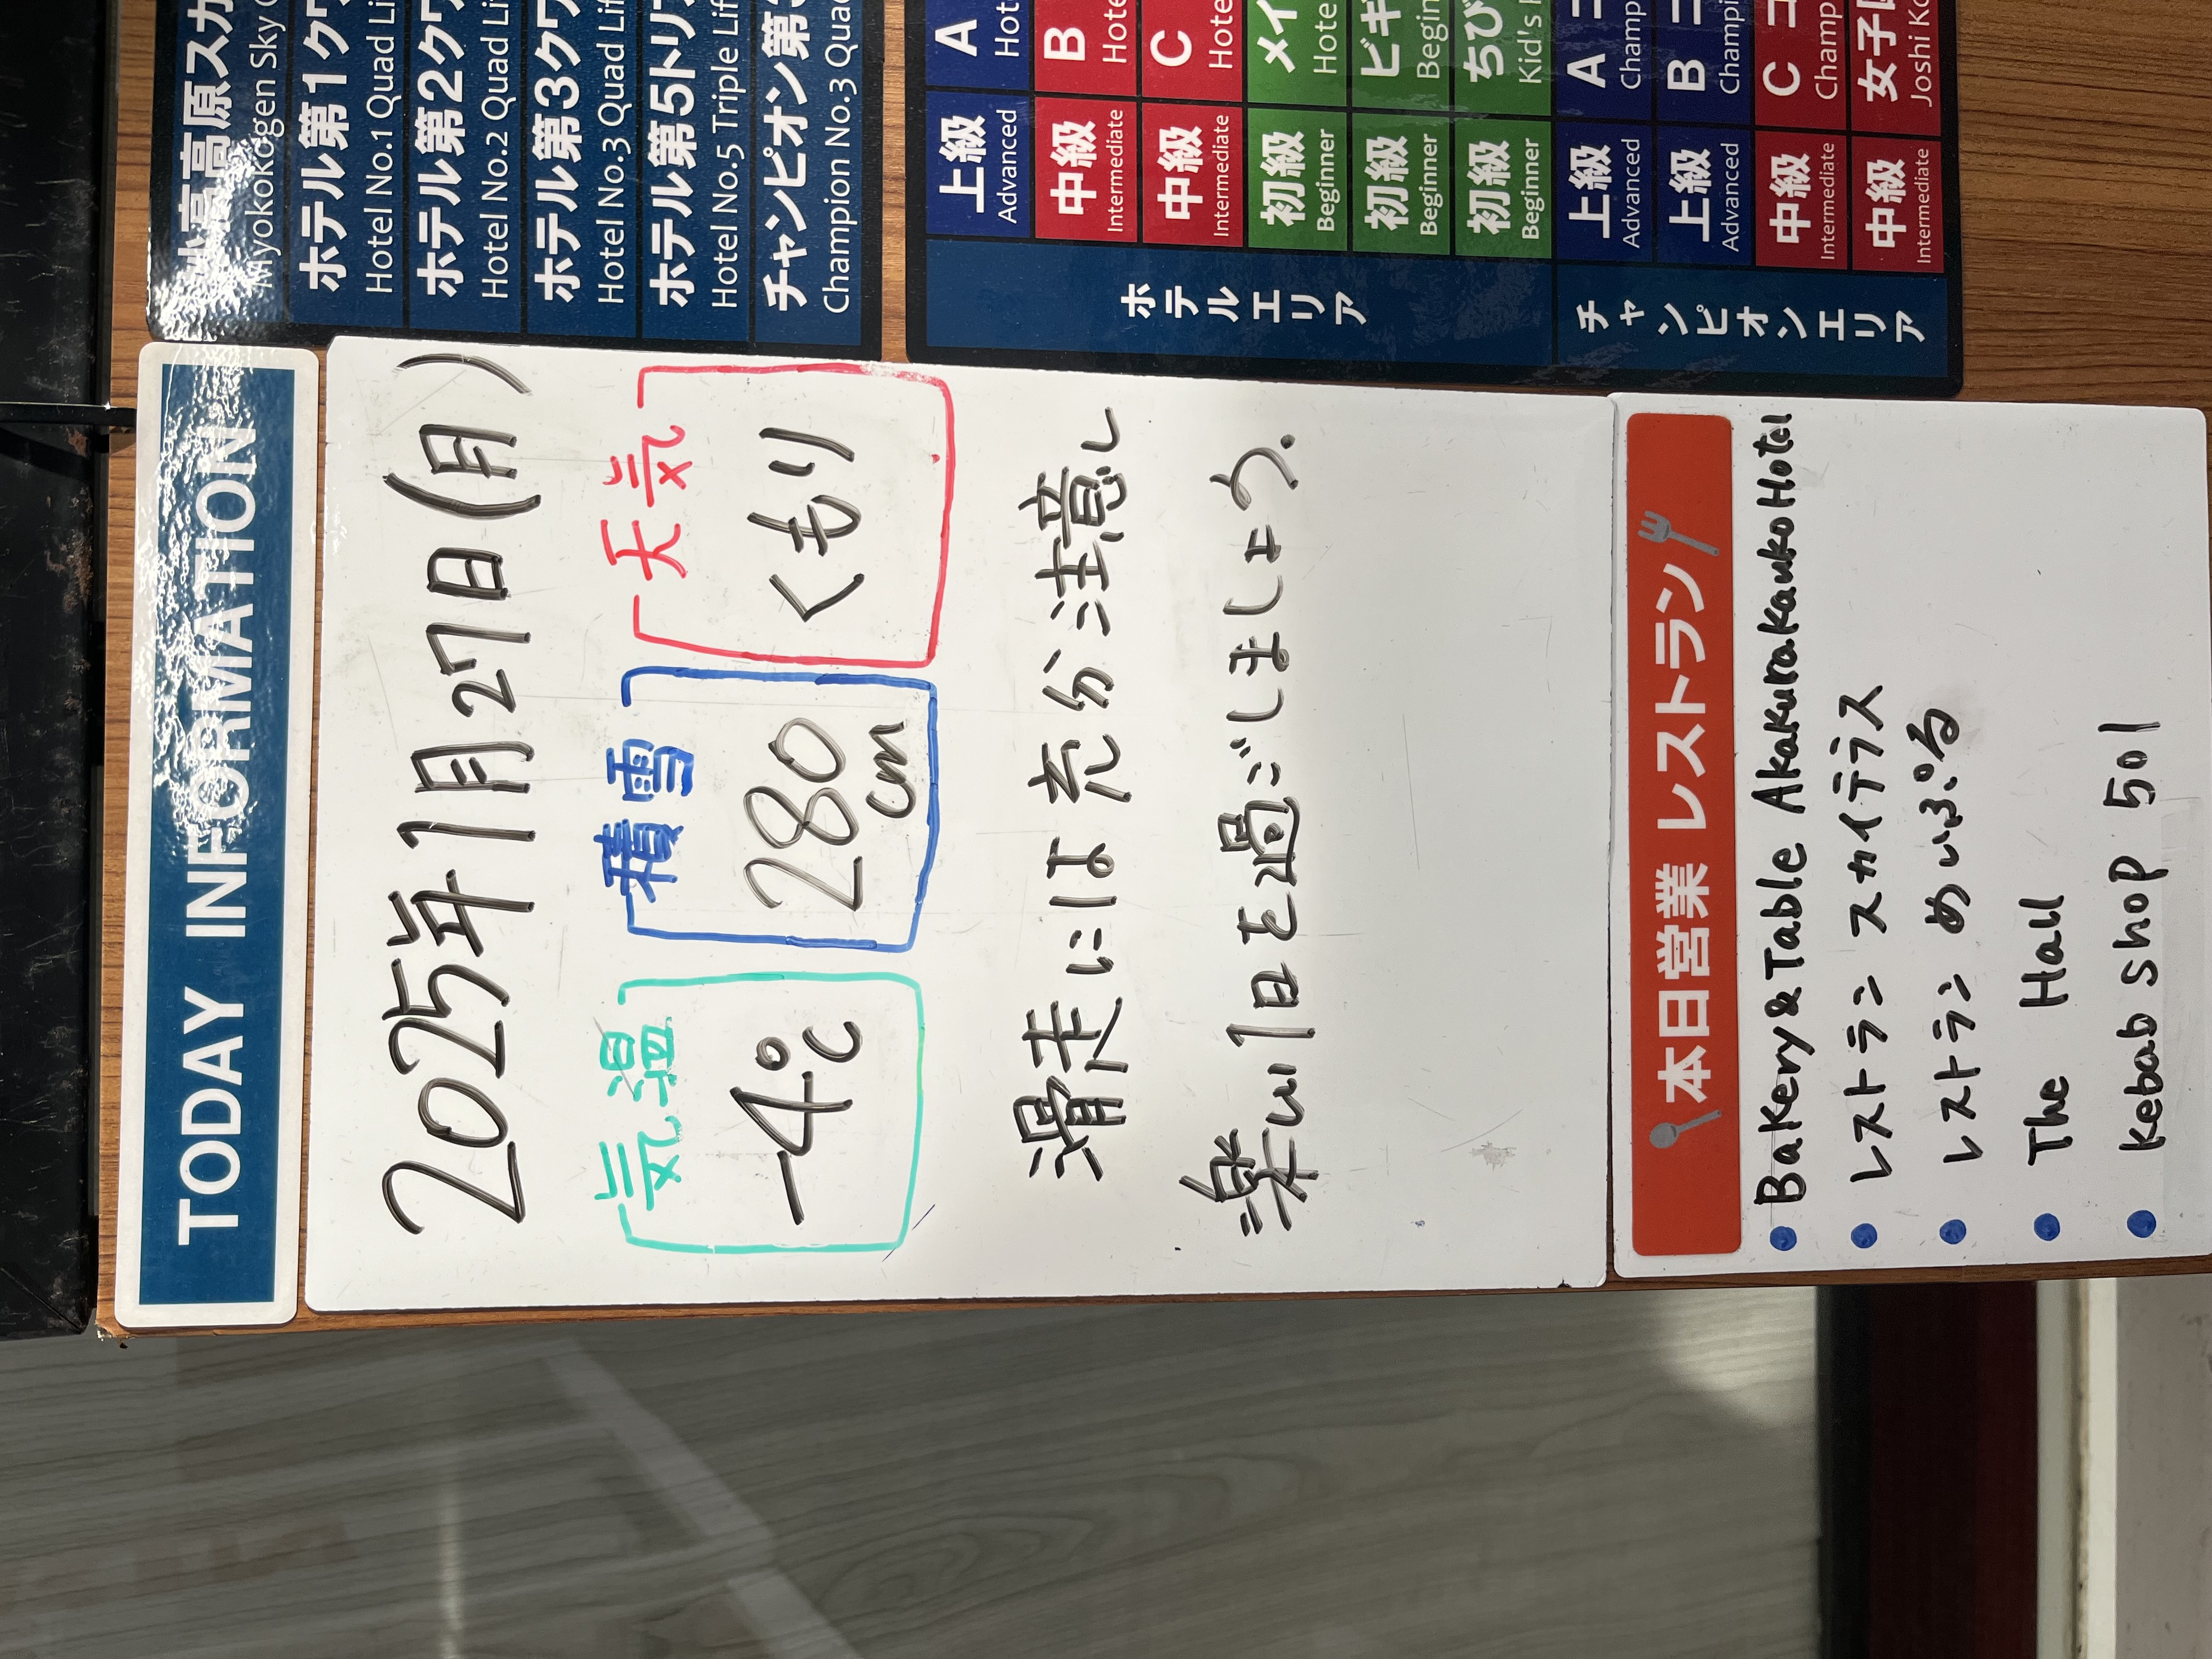 TODAY INFORMATION
2025年1月27日(月)
気温 積雪 天気
-4℃ 280cm くもり
滑走には充分注意し
楽しい1日を過ごしましょう.
本日営業 レストラン
● Bakery&Table AkakurakankoHotel
● レストラン スカイテラス
● レストラン めいぷる
● The Hall
● kebab shop 501
妙高高原スカ
Myokokogen Sky
ホテル第1ク
Hotel No.1 Quad Li
ホテル第2ク
Hotel No.2 Quad Li
ホテル第3ク
Hotel No.3 Quad Lif
ホテル第5トリ
Hotel No.5 Triple Lif
チャンピオン第3
Champion No.3 Quad
ホテルエリア
上級 A
Advanced Hot
中級 B
Intermediate Hote
中級 C
Intermediate Hote
初級 メイ
Beginner Hote
初級 ビギ
Beginner Begin
初級 ちび
Beginner Kid's
チャンピオンエリア
上級 A コ
Advanced Champ
上級 B コ
Advanced Champi
中級 C コ
Intermediate Champ
中級 女子
Intermediate Joshi Ko